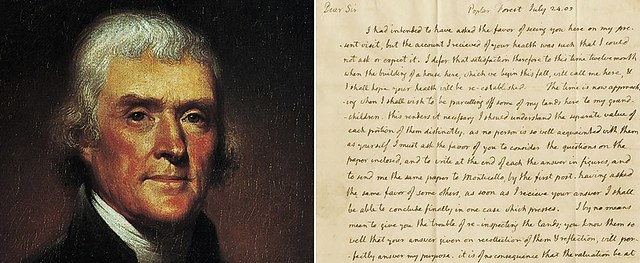 Dear Sir Poplar Forest July 24. 05
I had intended to have asked the favor of seeing you here on my pre-
-sent visit, but the account I recieved of your health was such that I could
not ask or expect it. I defer that satisfaction therefore to this time twelvemonth
when the building of a house here, which we begin this fall, will call me here, &
I shall hope your health will be re-established. The time is now approach-
-ing when I shall wish to be parcelling off some of my lands here to my grand-
-children. this renders it necessary I should understand the separate value of
each portion of them distinctly. as no person is so well acquainted with them
as yourself I must ask the favor of you to consider the questions on the
paper inclosed, and to write at the end of each the answer in figures, and
to send me the same paper to Monticello, by the first post. having asked
the same favor of some others, as soon as I recieve your answer I shall
be able to conclude finally in one case which presses. I by no means
mean to give you the trouble of re-inspecting the lands. you know them so
well that your answer given on recollection of them & reflection, will per-
-fectly answer my purpose. it is of no consequence that the valuation be at